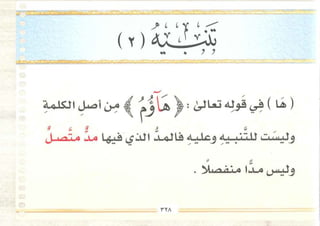 تَنبِيهٌ ( ٢ )
( هَا ) فِي قَولِه تعالىٰ : ﴿ هَآؤُمُ ﴾ مِن أصلِ الكلمةِ
وليسَت للتَّنبيهِ وعليهِ فالمدُّ الذي فيها مدٌّ متَّصلٌ
وليسَ مدًّا منفصلًا .
٣٢٨